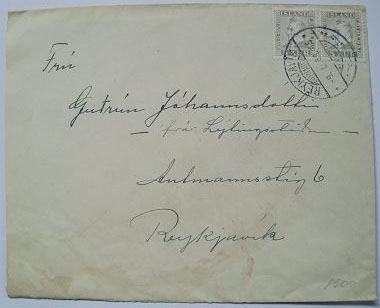 ÍSLAND ÍSLAND
REYKJAVÍK
Frú
Guðrún Jóhannsdóttir
- frá
Amtmannsstíg 6
Reykjavík
1500